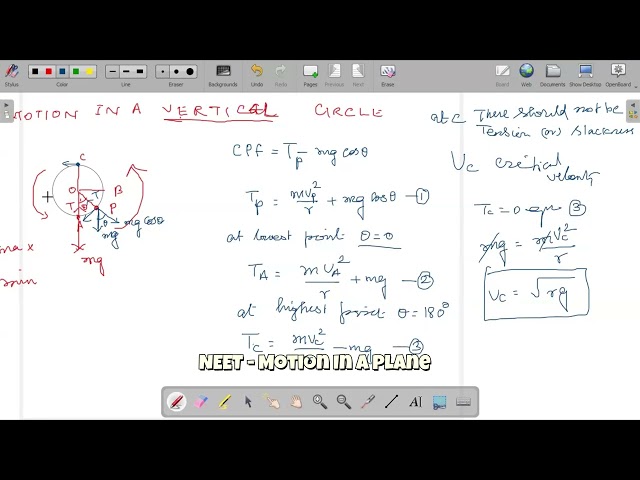 Stylus
Color
Line
Eraser
Backgrounds
Undo
Redo
Pages
Erase
Previous
Next
Board
Web
Documents
Show Desktop
OpenBoard
MOTION IN A VERTICAL CIRCLE
CPF = T_P - mg cosθ
T_P = mv_P²/r + mg cosθ — ①
at lowest point θ = 0
T_A = mv_A²/r + mg — ②
at highest point θ = 180°
T_C = mv_C²/r - mg — ③
C
O
B
T
T
θ
P
A
θ
mg cosθ
mg
mg
max
min
at C There should not be
Tension (or) slackness
V_C critical
velocity
T_C = 0 eqn ③
mg = mV_C²/r
V_C = √rg
NEET - Motion in a Plane